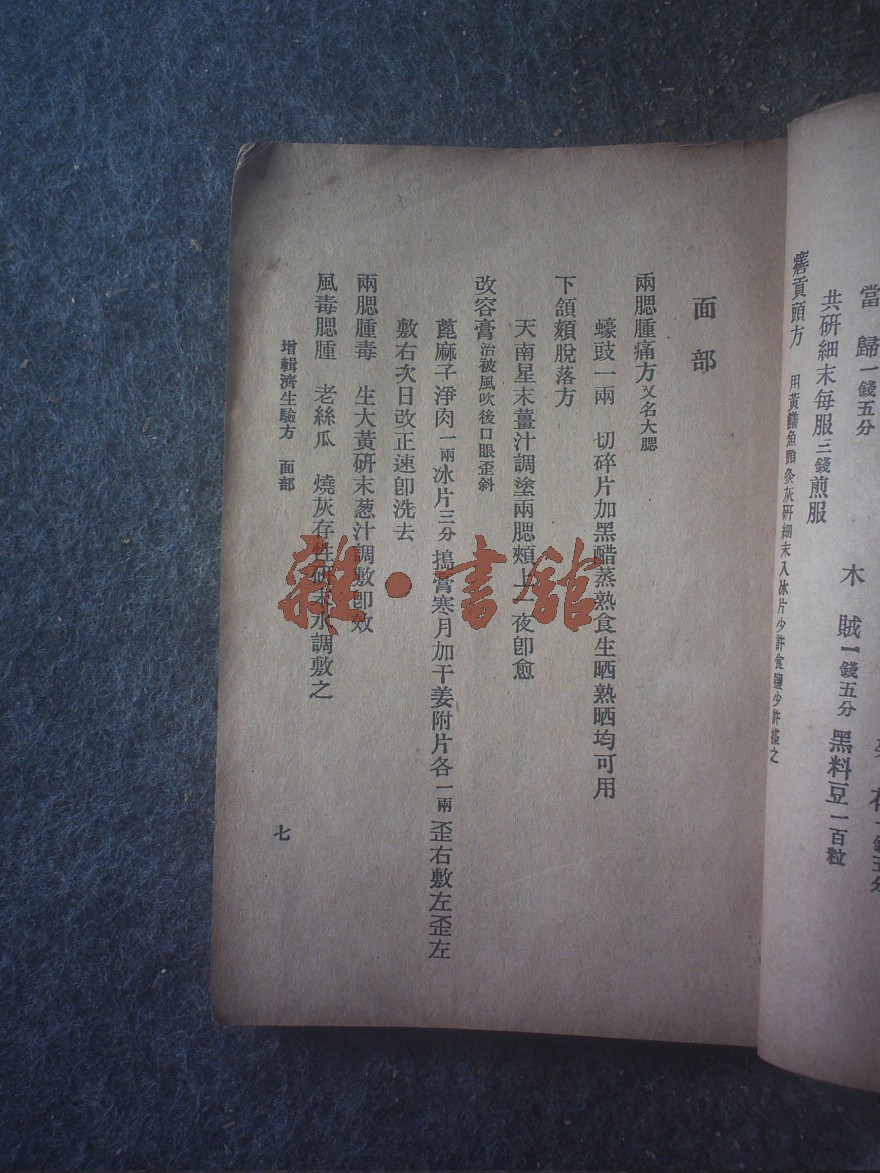 當歸一錢五分　木賊一錢五分
共研細末每服三錢煎服　黑料豆一百粒
用黃鱔魚頭灸灰研細末入冰片少許食鹽少許搽之
面部
兩腮腫痛方又名大腮
蠔豉一兩　切碎片加黑醋蒸熟食生晒熟晒均可用
下頷頦脫落方
天南星末薑汁調塗兩腮頰上一夜卽愈
改容膏治被風吹後口眼歪斜
蓖麻子淨肉一兩冰片三分搗膏寒月加干姜附片各一兩歪右敷左歪左
敷右次日改正速卽洗去
兩腮腫毒　生大黃研末葱汁調敷卽效
風毒腮腫　老絲瓜　燒灰存性研末水調敷之
增輯濟生驗方　面部
七
雜·書館